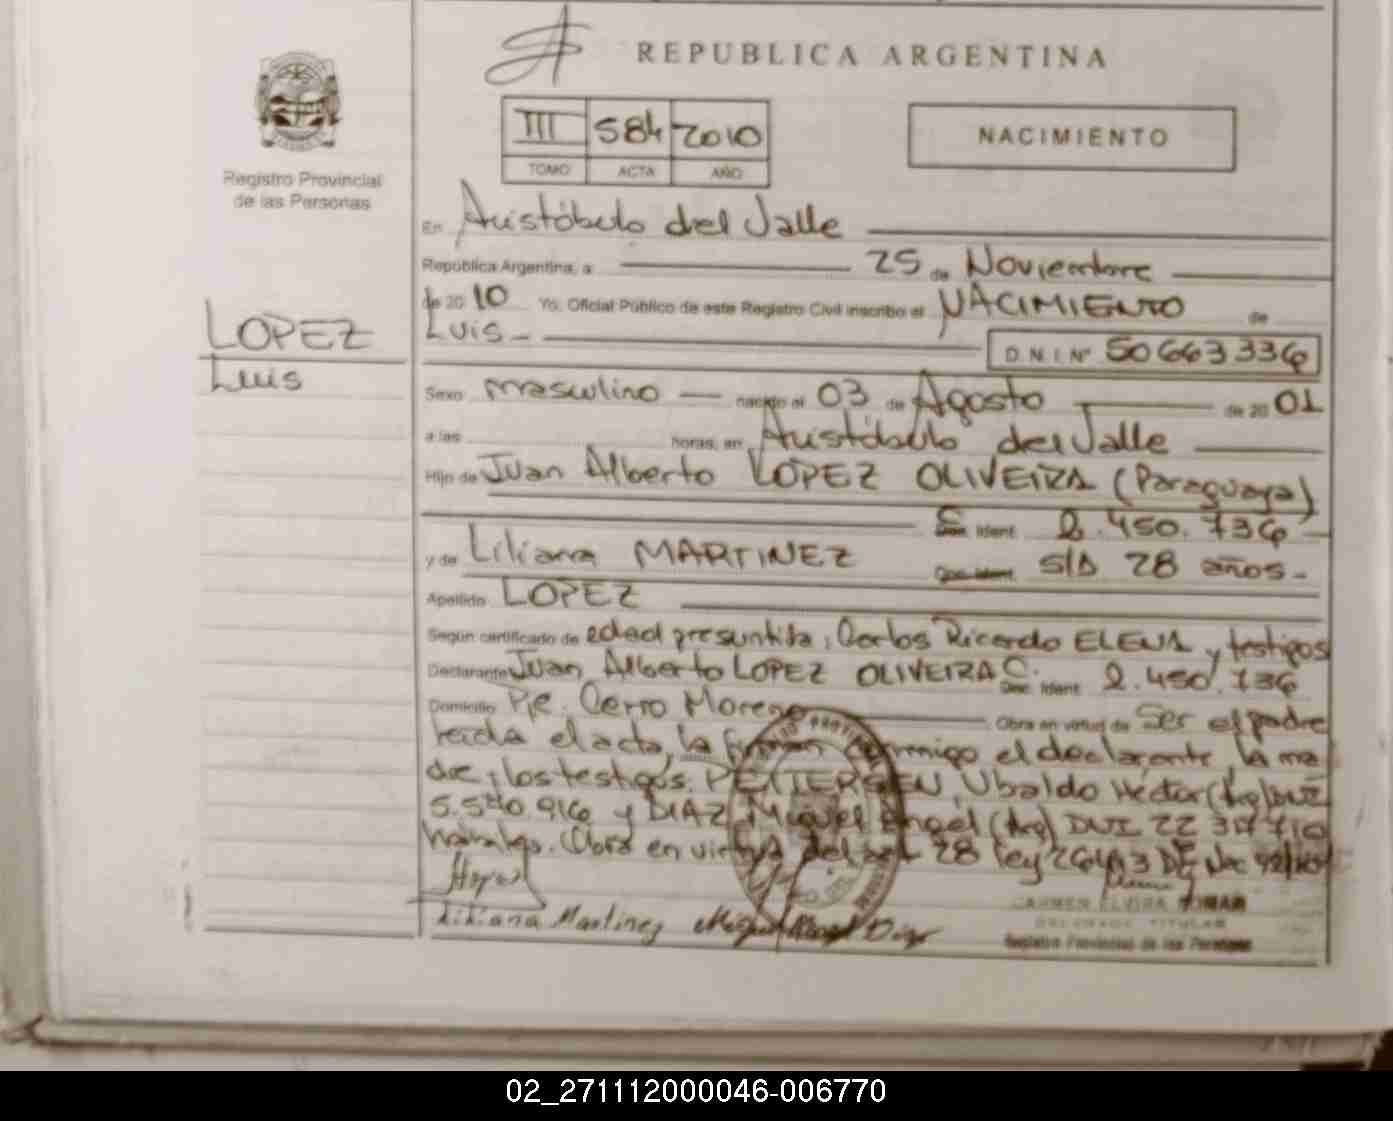 REPUBLICA ARGENTINA
III 584 2010
TOMO ACTA AÑO
NACIMIENTO
Registro Provincial
de las Personas
LOPEZ
Luis
En Aristóbulo del Valle
República Argentina, a 25 de Noviembre
de 2010 Yo, Oficial Público de este Registro Civil inscribo el NACIMIENTO de
Luis D.N.I. Nº 50663336
Sexo masculino nacido el 03 de Agosto de 2001
a las horas, en Aristóbulo del Valle
Hijo de Juan Alberto LOPEZ OLIVEIRA (Paraguaya)
C. Ident 2.450.736
y de Liliana MARTINEZ S/D 28 años
Apellido LOPEZ
Según certificado de edad presuntiva, Carlos Ricardo ELENA y testigos
Declarante Juan Alberto LOPEZ OLIVEIRA C. Ident 2.450.736
Domicilio Pje. Cerro Moreno Obra en virtud de Ser el padre
leída el acta, la firman conmigo el declarante, la ma
dre, los testigos. PETTERSEN, Ubaldo Héctor (Arg) DNI
y DIAZ Miguel Angel (Arg) DNI 22
Obra en virtud del 28 ley
Liliana Martinez Miguel Angel Diaz
CARMEN ELVIRA
DELEGADO TITULAR
Registro Provincial de las Personas
02_271112000046-006770